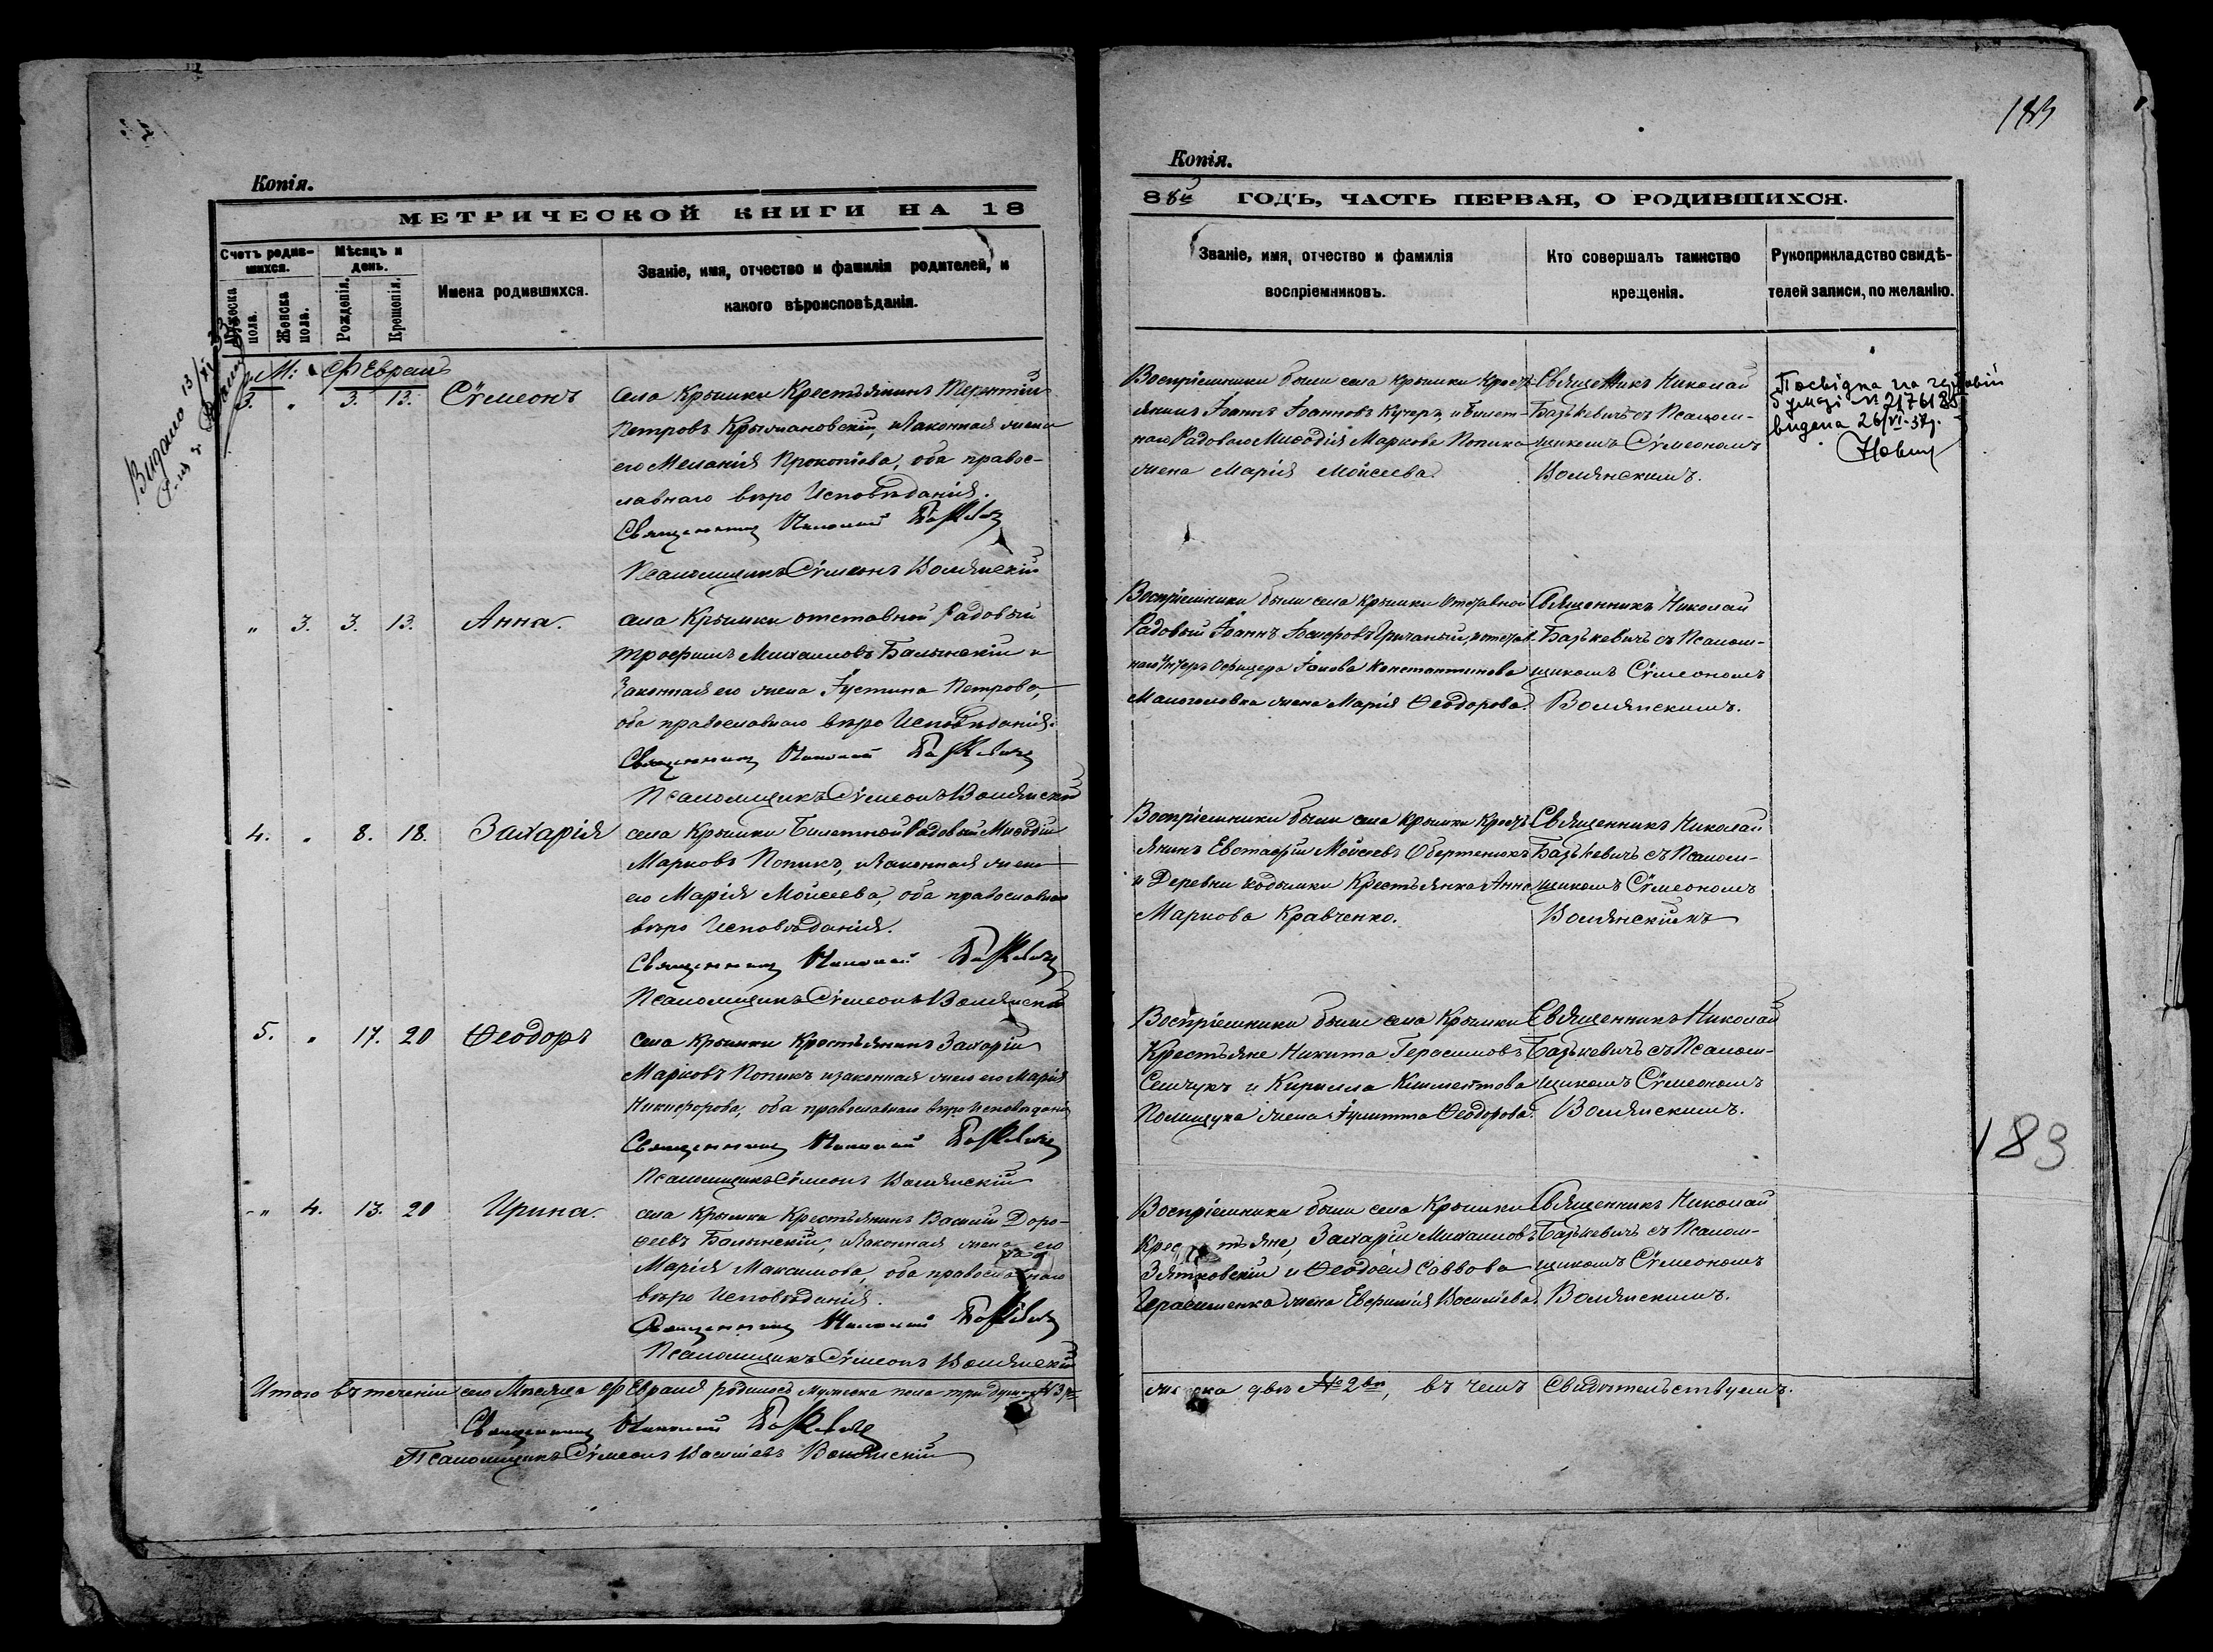 Копія.
МЕТРИЧЕСКОЙ КНИГИ НА 18
Счетъ родив-
шихся.
Мѣсяцъ и
день.
Мужеска
пола.
Женска
пола.
Рожденія.
Крещенія.
Имена родившихся.
Званіе, имя, отчество и фамилія родителей, и
какого вѣроисповѣданія.
Видано 13/XI 33
М: Февраль
3. " 3. 13. Сѵмеонъ
села Крымки Крестьянинъ Терентій
Петровъ Крыжановскій, и законная жена
его Меланія Прокопіева, оба правос-
лавнаго вѣро Исповѣданія.
Священникъ Николай Базькевичъ
Псаломщикъ Сѵмеонъ Волянскій
" 3. 3. 13. Анна.
села Крымки отставной Рядовый
Трофимъ Михаиловъ Балынскій и
Законная его жена Іустина Петрова,
оба православнаго вѣро Исповѣданія.
Священникъ Николай Базькевичъ
Псаломщикъ Сѵмеонъ Волянскій
4. " 8. 18. Захарія
села Крымки Билетной Рядовый Миѳодій
Марковъ Попикъ, и законная жена
его Марія Моисеева, оба православнаго
вѣро Исповѣданія.
Священникъ Николай Базькевичъ
Псаломщикъ Сѵмеонъ Волянскій
5. " 17. 20 Ѳеодоръ
села Крымки Крестьянинъ Захарій
Марковъ Попикъ и законная жена его Марія
Никифорова, оба православнаго вѣро Исповѣданія
Священникъ Николай Базькевичъ
Псаломщикъ Сѵмеонъ Волянскій
" 4. 13. 20 Ирина.
села Крымки Крестьянинъ Василій Доро-
ѳеевъ Балынскій, и законная жена его
Марія Максимова, оба православнаго
вѣро Исповѣданія.
Священникъ Николай Базькевичъ
Псаломщикъ Сѵмеонъ Волянскій
Итого въ теченіи сего Мѣсяца Февраля родилось Мужеска пола три души № 3
Священникъ Николай Базькевичъ
Псаломщикъ Сѵмеонъ Василіевъ Волянскій
183
Копія.
884й ГОДЪ, ЧАСТЬ ПЕРВАЯ, О РОДИВШИХСЯ.
Званіе, имя, отчество и фамилія
воспріемниковъ.
Кто совершалъ таинство
крещенія.
Рукоприкладство свидѣ-
телей записи, по желанію.
Воспріемники были села Крымки Кресть-
янинъ Іоаннъ Іоанновъ Кучеръ, и Билет-
наго Рядоваго Миѳодія Маркова Попика
жена Марія Моисеева.
Священникъ Николай
Базькевичъ съ Псалом-
щикомъ Сѵмеономъ
Волянскимъ.
Посвідка на гербовій
бумазі № 217618
видана 26/VI-37.
Воспріемники были села Крымки Отставной
Рядовый Іоаннъ Гричаный, и отстав-
наго Унтеръ Офицера Іакова Константинова
Малоголовка жена Марія Ѳеодорова.
Священникъ Николай
Базькевичъ съ Псалом-
щикомъ Сѵмеономъ
Волянскимъ.
Воспріемники были села Крымки Кресть-
янинъ Евстафій Моисеевъ Обертенюкъ
и Деревни Кодымки Крестьянка Анна
Маркова Кравченко.
Священникъ Николай
Базькевичъ съ Псалом-
щикомъ Сѵмеономъ
Волянскимъ
Воспріемники были села Крымки
Крестьяне Никита Герасимовъ
Семчукъ и Кирилла Климентова
Полищука жена Іулитта Ѳеодорова.
Священникъ Николай
Базькевичъ съ Псалом-
щикомъ Сѵмеономъ
Волянскимъ.
183
Воспріемники были села Крымки
Крестьяне, Захарій Михаиловъ
Зятковскій и Ѳеодосія Саввова
Герасименка жена Евфимія Василіева.
Священникъ Николай
Базькевичъ съ Псалом-
щикомъ Сѵмеономъ
Волянскимъ.
женска двѣ № 2, въ чемъ Свидѣтельствуемъ.